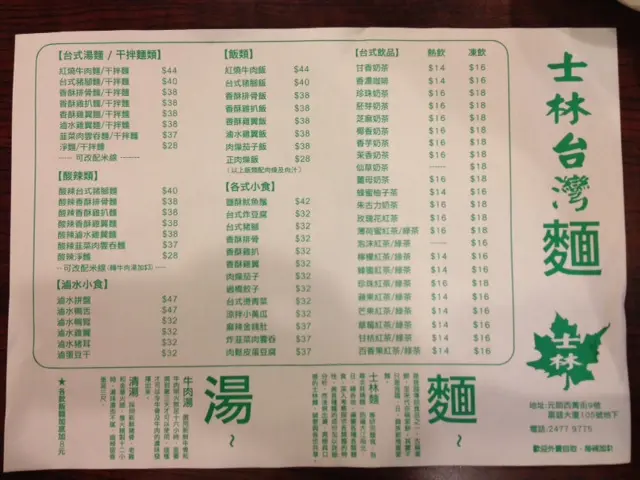 【台式湯麵 / 干拌麵類】
紅燒牛肉麵/干拌麵 $44
台式豬腳麵/干拌麵 $40
香酥排骨麵/干拌麵 $38
香酥雞扒麵/干拌麵 $38
香酥雞翼麵/干拌麵 $38
滷水雞翼麵/干拌麵 $38
韮菜肉雲吞麵/干拌麵 $37
淨麵/干拌麵 $28
---- 可改配米線 ----
【酸辣類】
酸辣台式豬腳麵 $40
酸辣香酥排骨麵 $38
酸辣香酥雞扒麵 $38
酸辣香酥雞翼麵 $38
酸辣滷水雞翼麵 $38
酸辣韮菜肉雲吞麵 $37
酸辣淨麵 $28
--可改配米線(轉牛肉湯加$3)--
【滷水小食】
滷水拼盤 $47
滷水鴨舌 $47
滷水鴨腎 $32
滷水雞翼 $32
滷水豬耳 $32
滷蛋豆干 $32
【飯類】
紅燒牛肉飯 $44
台式豬腳飯 $40
香酥排骨飯 $38
香酥雞扒飯 $38
香酥雞翼飯 $38
滷水雞翼飯 $38
肉燥茄子飯 $38
正肉燥飯 $28
(以上飯類配肉燥及肉汁)
【各式小食】
鹽酥魷魚鬚 $42
台式炸豆腐 $32
台式豬腳 $32
香酥排骨 $32
香酥雞扒 $32
香酥雞翼 $32
肉燥茄子 $32
過橋餃子 $32
台式燙青菜 $32
涼拌小黃瓜 $32
麻辣金錢肚 $37
炸韮菜肉雲吞 $37
肉鬆皮蛋豆腐 $37
【台式飲品】 熱飲 凍飲
甘香奶茶 $14 $16
香濃咖啡 $14 $16
珍珠奶茶 $16 $18
胚芽奶茶 $16 $18
芝麻奶茶 $16 $18
椰香奶茶 $16 $18
香芋奶茶 $16 $18
茉香奶茶 $16 $18
仙草奶茶 ---- $18
薑母奶茶 $16 $18
蜂蜜柚子茶 $14 $16
朱古力奶茶 $16 $18
玫瑰花紅茶 $16 $18
薄荷蜜紅茶/綠茶 $16 $18
泡沫紅茶/綠茶 ---- $16
檸檬紅茶/綠茶 $14 $16
蜂蜜紅茶/綠茶 $14 $16
珍珠紅茶/綠茶 $16 $18
蘋果紅茶/綠茶 $14 $16
芒果紅茶/綠茶 $14 $16
草莓紅茶/綠茶 $14 $16
甘桔紅茶/綠茶 $14 $16
百香果紅茶/綠茶 $14 $16
士林台灣麵
士林
地址:元朗西菁街9號
富雄大廈105號地下
電話:2477 9775
麵~
士林麵
湯~
牛肉湯
清湯
★各款飯麵加底加8元